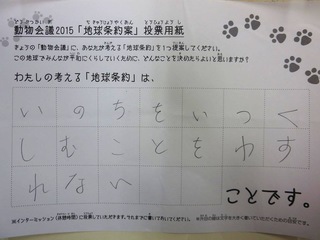 動物会議2015「地球条約案」投票用紙
きょうの「動物会議」に、あなたが考える「地球条約」を1つ提案してください。
この地球でみんなが平和にくらしていくために、どんなことを決めたらよいと思いますか？
わたしの考える「地球条約」は、
いのちをいつく
しむことをわす
れない
ことです。